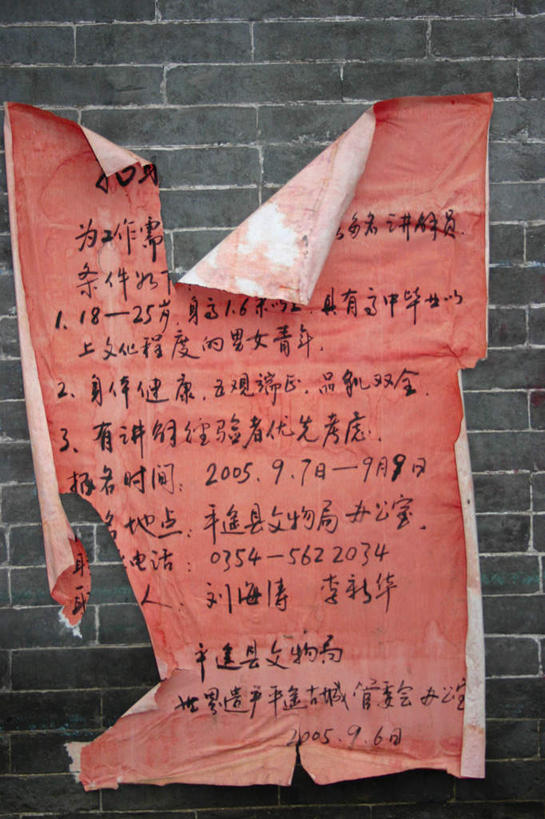 招聘
为工作需 多名讲解员.
条件如下
1. 18—25岁, 身高1.6米以上, 具有高中毕业以
上文化程度的男女青年.
2. 身体健康, 五观端正, 品貌双全.
3、有讲解经验者优先考虑.
报名时间: 2005.9.7日—9月9日
名地点: 平遥县文物局办公室.
联电话: 0354—5622034
联 人: 刘海涛 李新华
平遥县文物局
世界遗产平遥古城管委会办公室
2005.9.6日